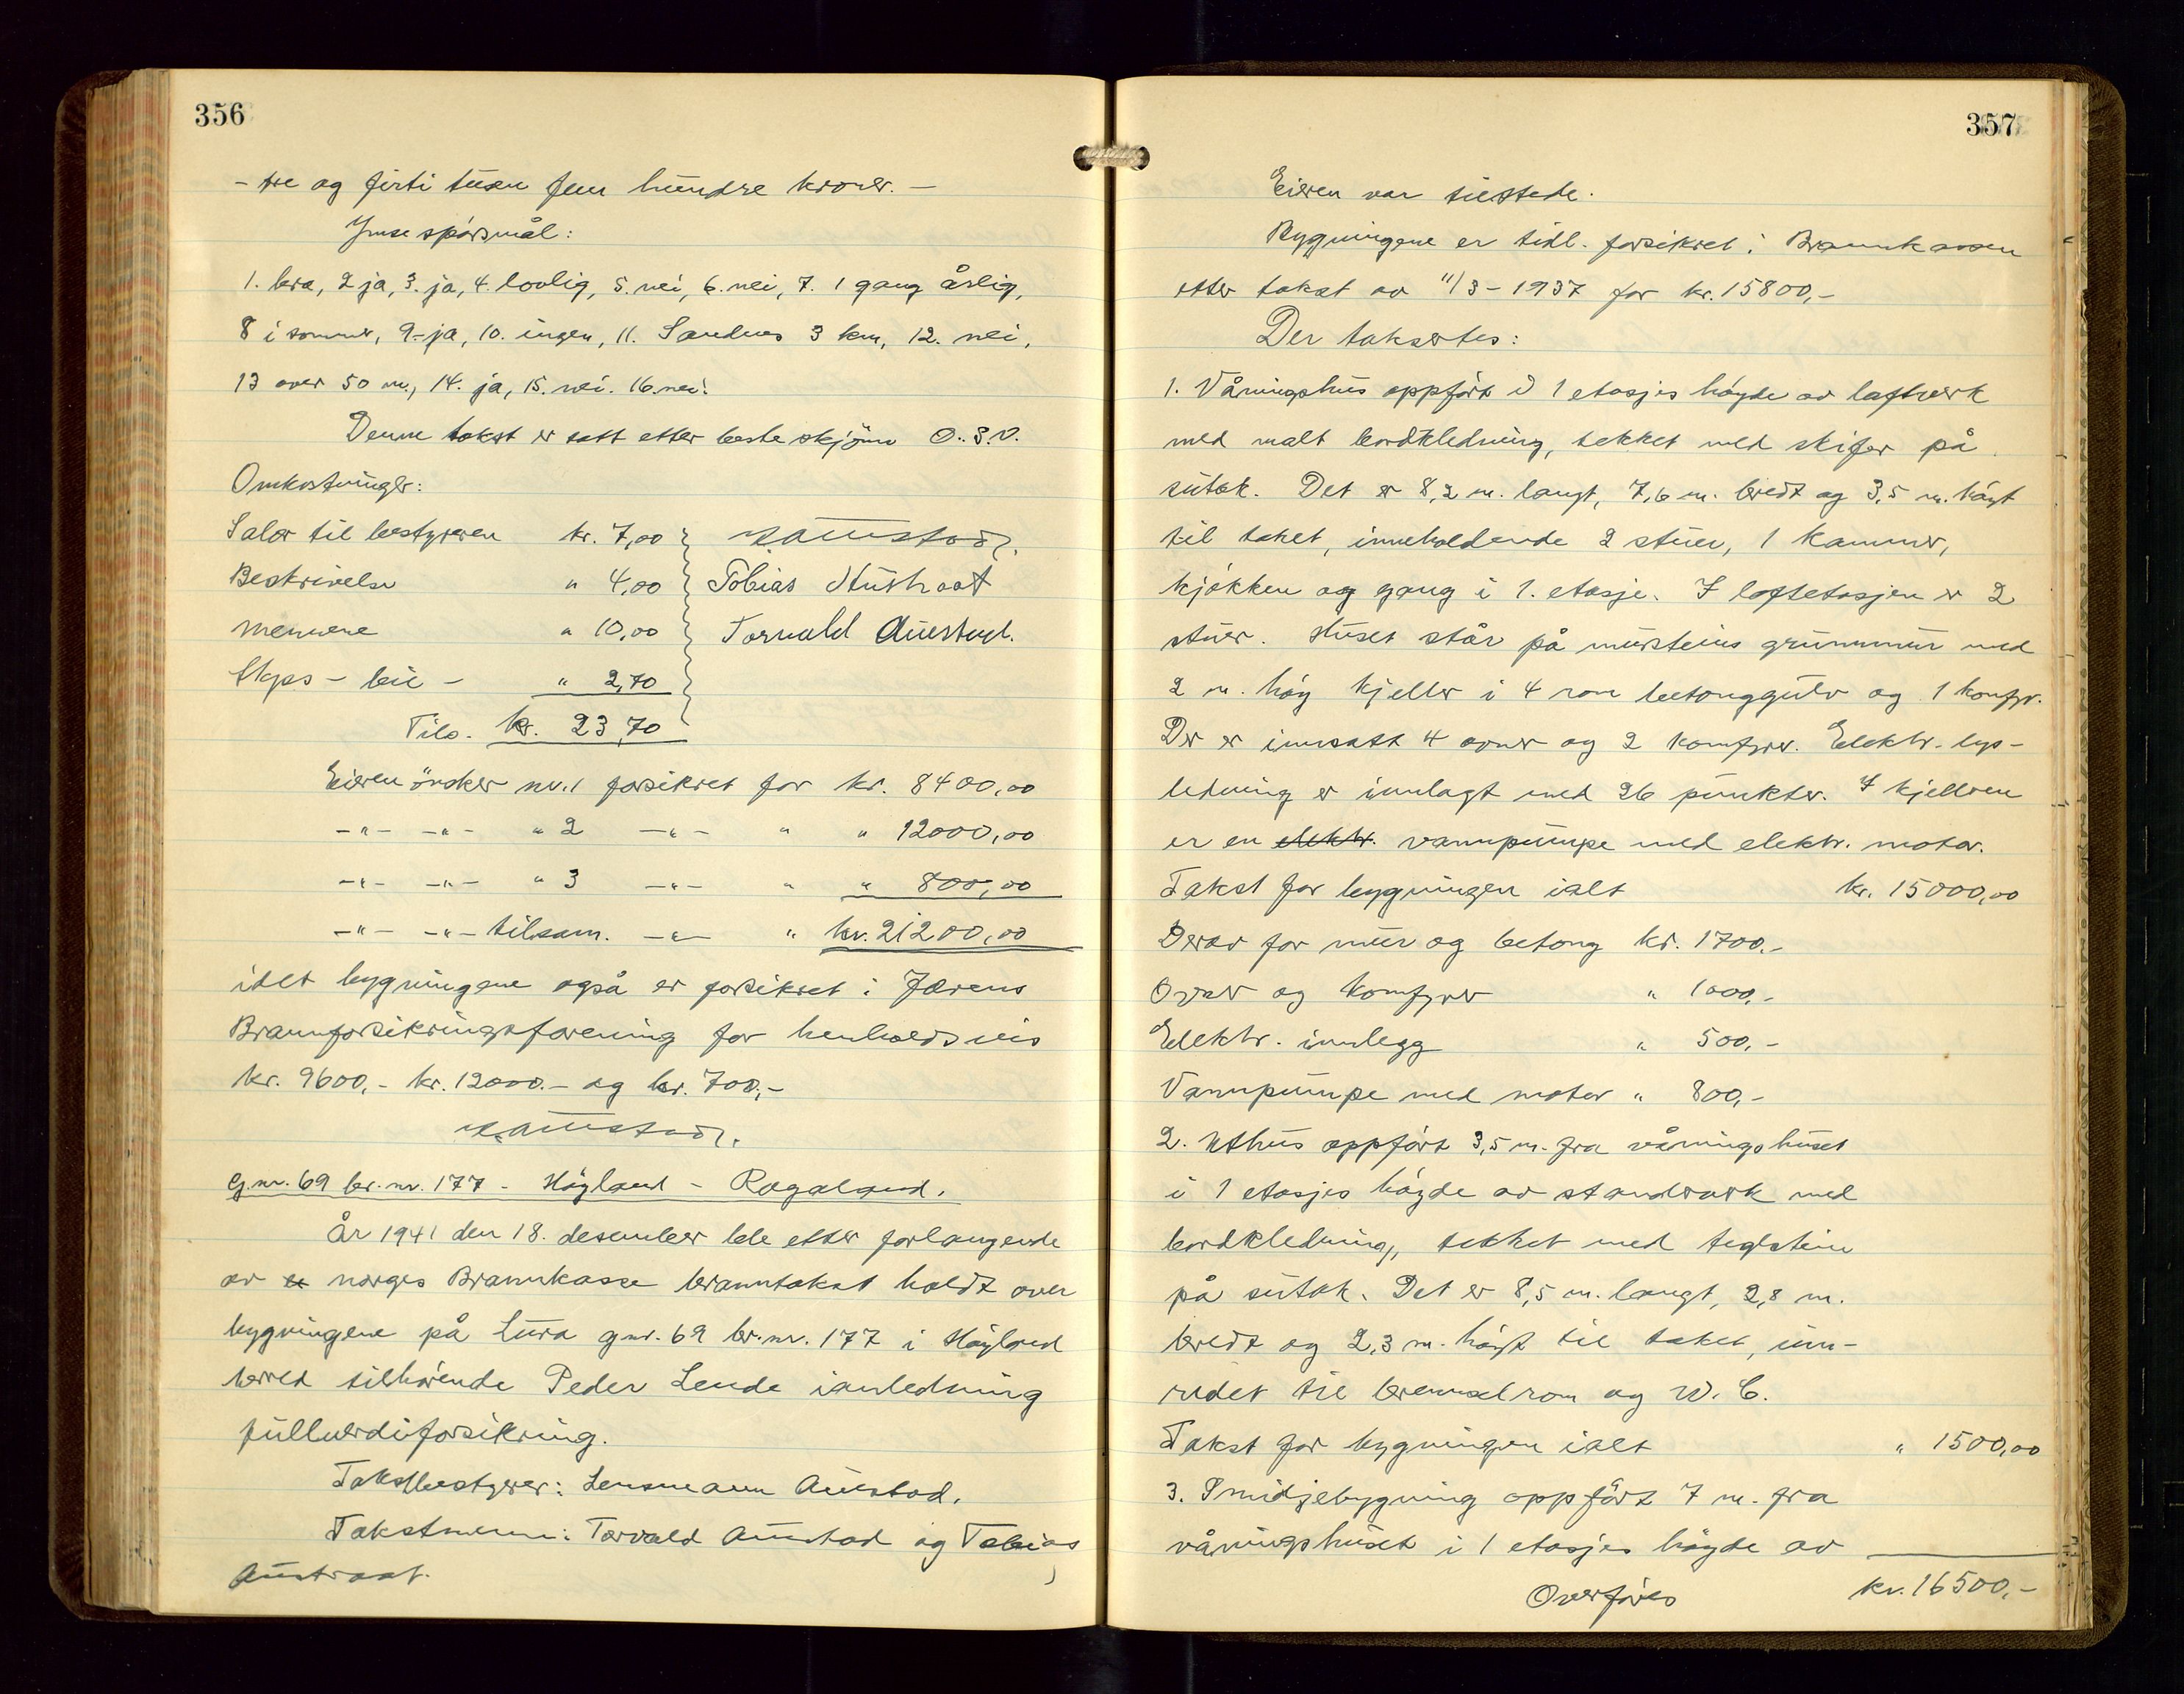 356
- tre og firti tusen fem hundre kroner. -
Ymse spörsmål:
1. bra, 2 ja, 3. ja, 4. lovlig, 5. nei, 6. nei, 7. 1 gang årlig,
8 i sommer, 9. ja, 10. ingen, 11. Sandnes 3 km, 12. nei,
13 over 50 m., 14. ja, 15. nei. 16. nei.
Denne takst er satt etter beste skjönn O.S.V.
Omkostninger:
Salær til bestyreren kr. 7,00
Beskrivelse " 4,00 Tobias Austraat
Mennene " 10,00 Torvald Auestad.
Skyss - bil - " 2,70
Tils. kr. 23,70
Eieren önsker nr. 1 forsikret for kr. 8400,00
-"- -"- " 2 -"- " " 12000,00
-"- -"- " 3 -"- " " 800,00
-"- -"- tilsam. -"- " kr. 21200,00
idet bygningene også er forsikret i Jærens
Brannforsikringsforening for henholdsvis
kr. 9600,- kr. 12000.- og kr. 700,-
G.nr. 69 br.nr. 177 - Höyland - Rogaland.
År 1941 den 18. desember ble etter forlangende
av Norges Brannkasse branntakst holdt over
bygningene på Lura gnr. 69 br.nr. 177 i Höyland
herred tilhörende Peder Lende i anledning
fullverdiforsikring.
Takstbestyrer: Lensmann Auestad.
Takstmenn: Torvald Auestad og Tobias
Austraat.
357
Eieren var tilstede.
Bygningene er tidl. forsikret i Brannkassen
etter takst av 11/3-1937 for kr. 15800,-
Der takseres:
1. Våningshus oppfört i 1 etasjes höyde av lafteverk
med malt bordkledning, tekket med skifer på
sutak. Det er 8,2 m. langt, 7,6 m. bredt og 3,5 m. höyt
til taket, inneholdende 2 stuer, 1 kammer,
kjökken og gang i 1. etasje. I loftetasjen er 2
stuer. Huset står på mursteins grunnmur med
2 m. höy kjeller i 4 rom betonggulv og 1 komfyr.
Der er innsatt 4 ovner og 2 komfyrer. Elektr. lys-
ledning er innlagt med 26 punkter. I kjelleren
er en elektr. vannpumpe med elektr. motor.
Takst for bygningen ialt kr. 15000,00
Derav for mur og betong kr. 1700,-
Ovner og komfyrer " 1000,-
Elektr. innlegg " 500,-
Vannpumpe med motor " 800,-
2. Uthus oppfört 3,5 m. fra våningshuset
i 1 etasjes höyde av standverk med
bordkledning, tekket med teglstein
på sutak. Det er 8,5 m. langt, 2,8 m.
bredt og 2,3 m. höyt til taket, inn-
redet til brenselrom og W.C.
Takst for bygningen ialt " 1500,00
3. Smidjebygning oppfört 7 m. fra
våningshuset i 1 etasjes höyde av
Overföres kr. 16500,-